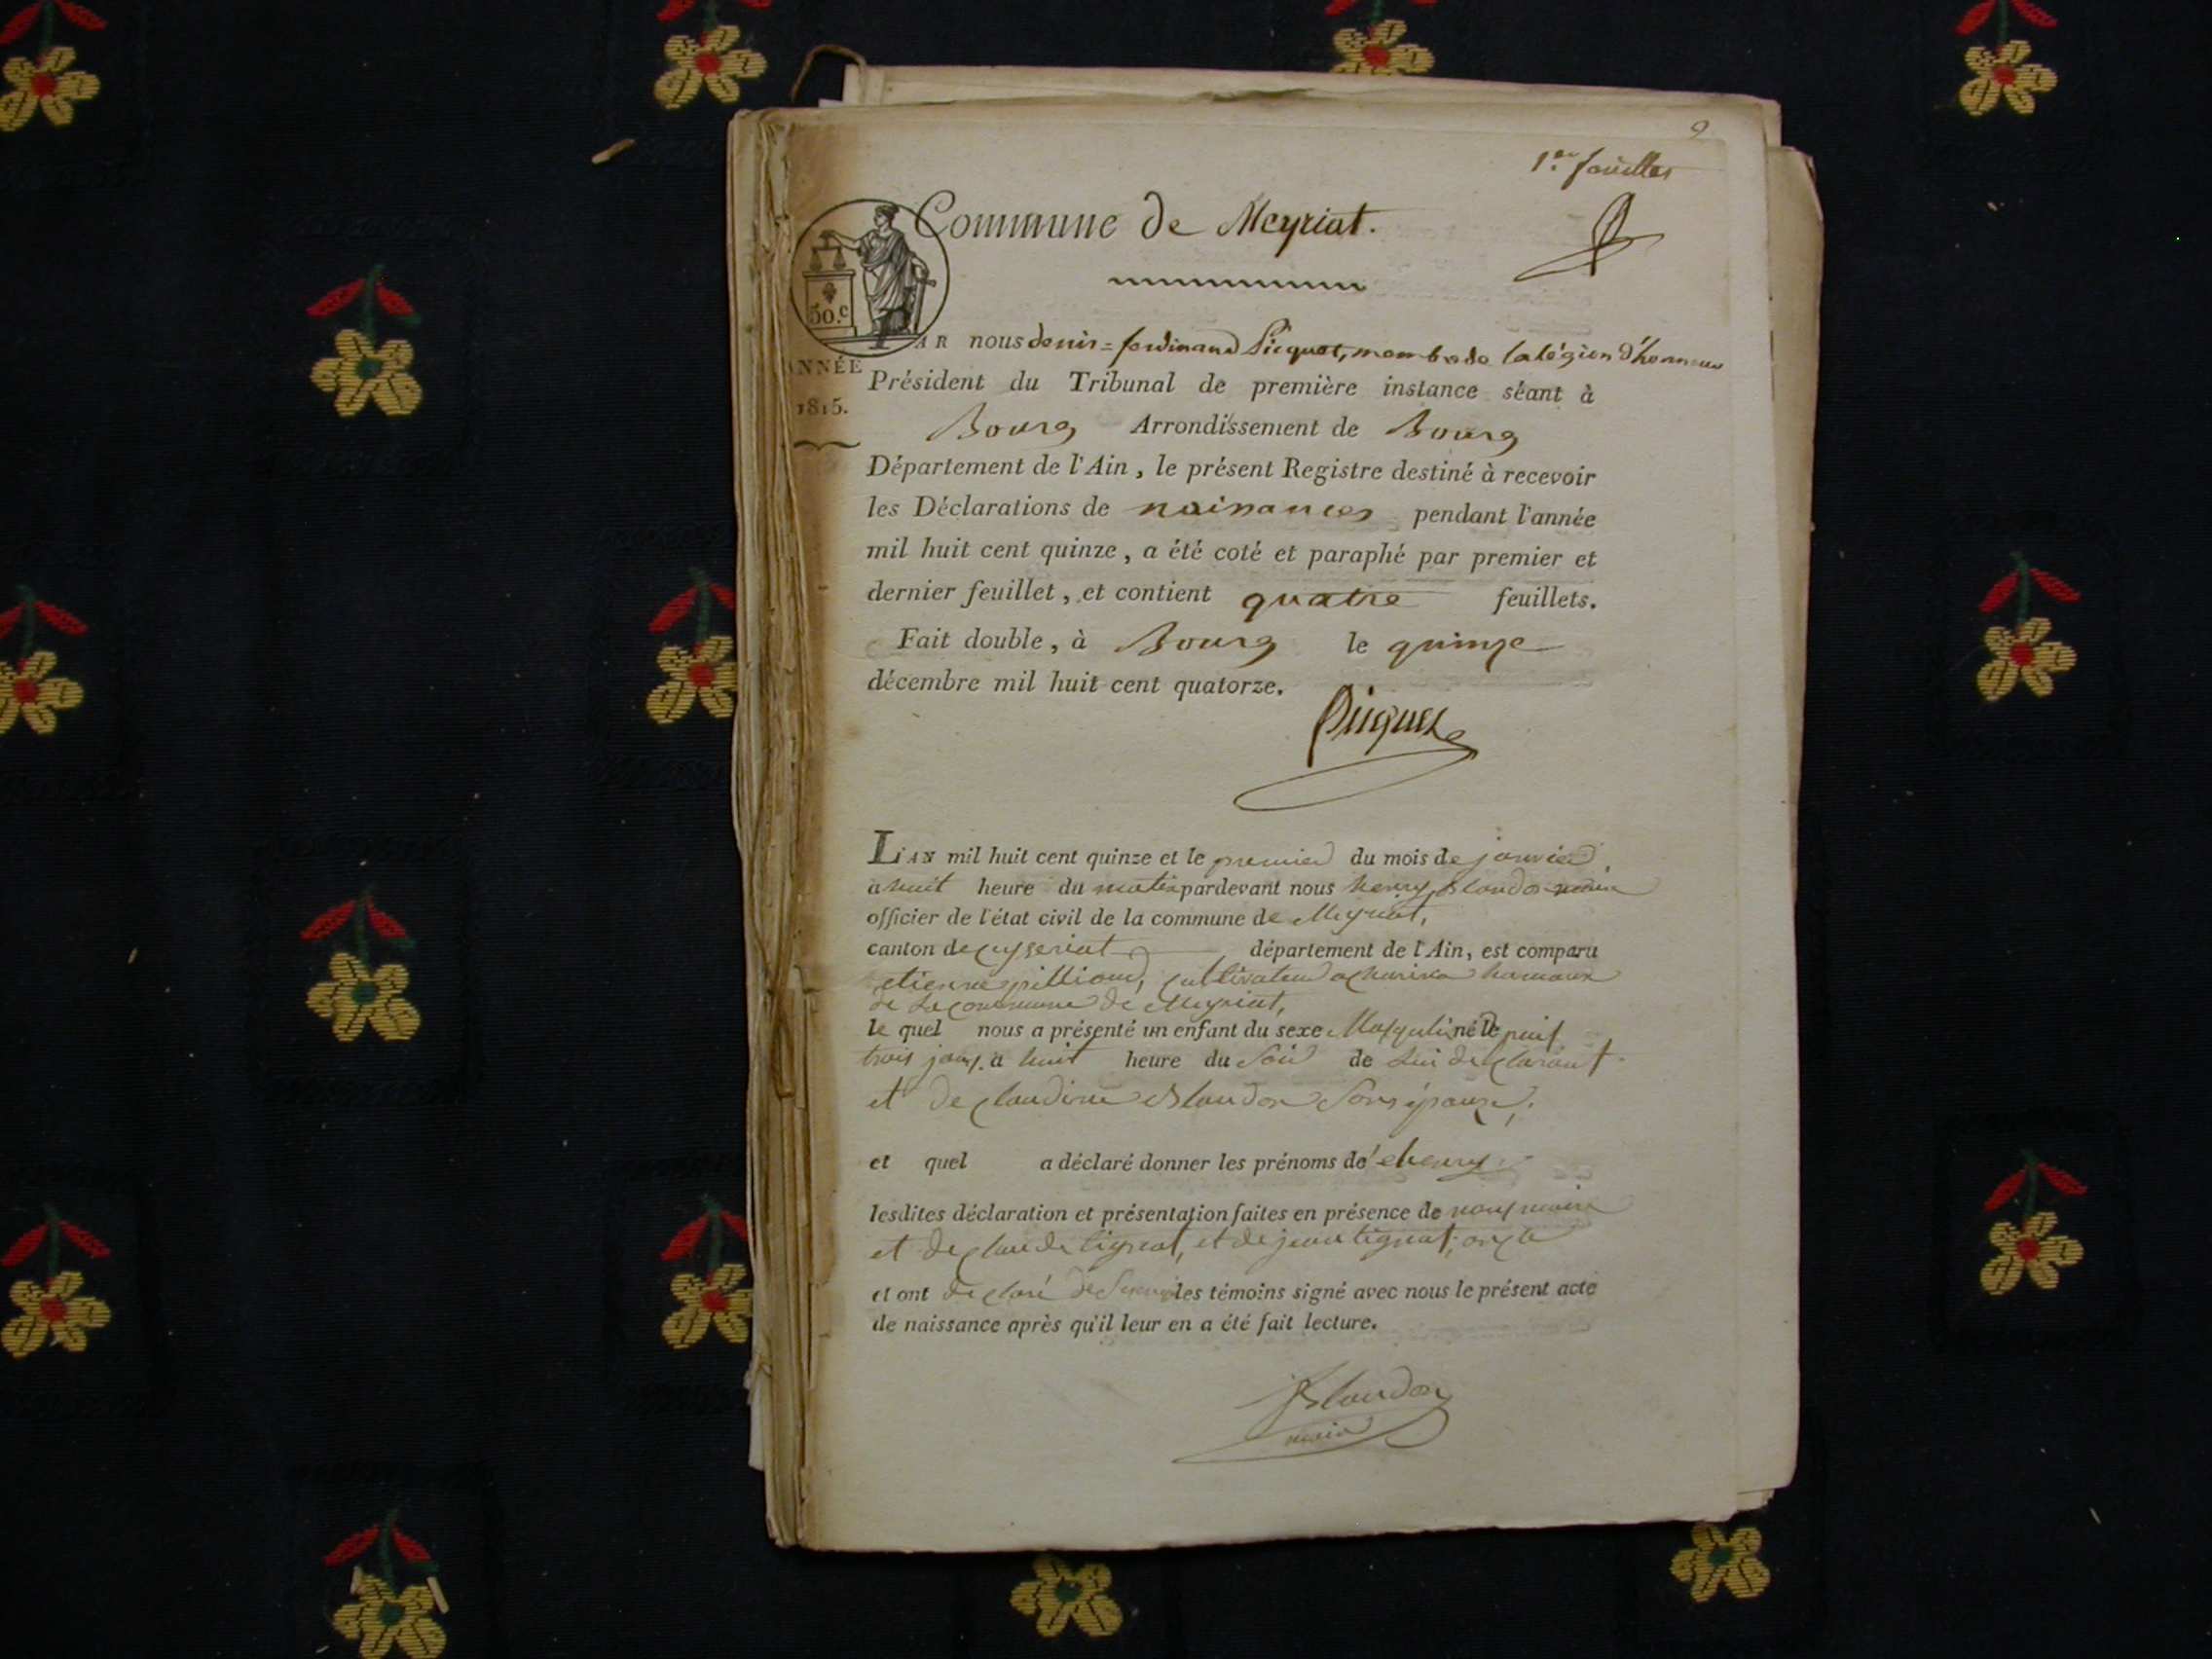 9
1er feuillet
Commune de Meyriat.
50.c
ANNÉE
1815.
PAR nous denis=ferdinand Picquet, membre de la légion d'honneur
Président du Tribunal de première instance séant à
Bourg Arrondissement de Bourg
Département de l'Ain, le présent Registre destiné à recevoir
les Déclarations de naissances pendant l'année
mil huit cent quinze, a été coté et paraphé par premier et
dernier feuillet, et contient quatre feuillets.
Fait double, à Bourg le quinze
décembre mil huit cent quatorze.
Picquet
L'AN mil huit cent quinze et le premier du mois de janvier
a huit heure du matin pardevant nous henry Blondon maire
officier de l'état civil de la commune de Meyriat,
canton de Ceyseriat département de l'Ain, est comparu
etienne pillion, cultivateur a hameau
de la commune de Meyriat,
le quel nous a présenté un enfant du sexe Masqulin né depuis
trois jours a huit heure du Soir de Lui declarant
et de claudine Blondon Son épouse,
et quel a déclaré donner les prénoms de henry
lesdites déclaration et présentation faites en présence de nous maire
et de claude tignat, et de jean tignat,
et ont declaré de les témoins signé avec nous le présent acte
de naissance après qu'il leur en a été fait lecture.
Blondon
maire